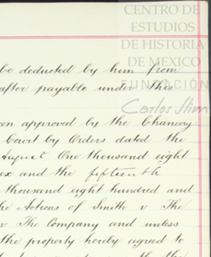 CENTRO DE
ESTUDIOS
DE HISTORIA
DE MEXICO
FUNDACIÓN
Carlos Slim
be deducted by him from
after payable under this
en approved by the Chancery
Court by Orders dated the
August One thousand eight
ex and the fifteenth
thousand eight hundred and
the Actions of Smith v The
v The Company and unless
the property hereby agreed to